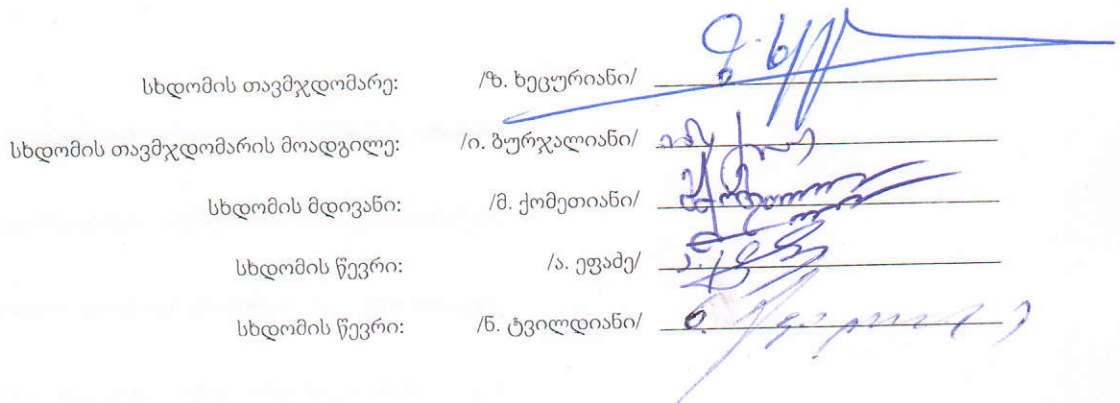 სხდომის თავმჯდომარე: /ზ. ხეცურიანი/
სხდომის თავმჯდომარის მოადგილე: /ი. ბურჯალიანი/
სხდომის მდივანი: /მ. ქომეთიანი/
სხდომის წევრი: /ა. ეფაძე/
სხდომის წევრი: /ნ. ტვილდიანი/